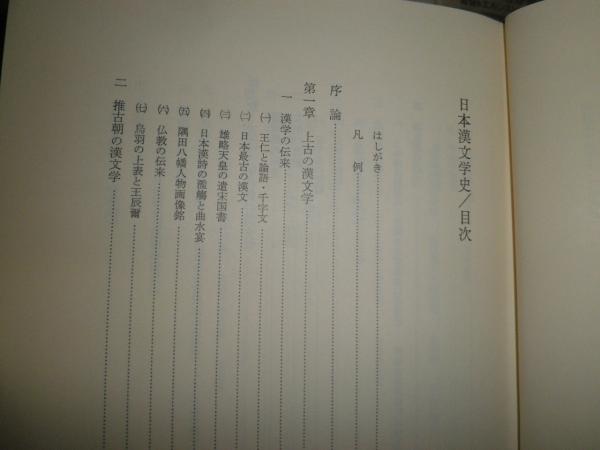 日本漢文学史/目次
はしがき
凡例
序論
第一章 上古の漢文学
一 漢学の伝来
㈠ 王仁と論語・千字文
㈡ 日本最古の漢文
㈢ 雄略天皇の遣宋国書
㈣ 日本漢詩の濫觴と曲水宴
㈤ 隅田八幡人物画像銘
㈥ 仏教の伝来
㈦ 烏羽の上表と王辰爾
二 推古朝の漢文学